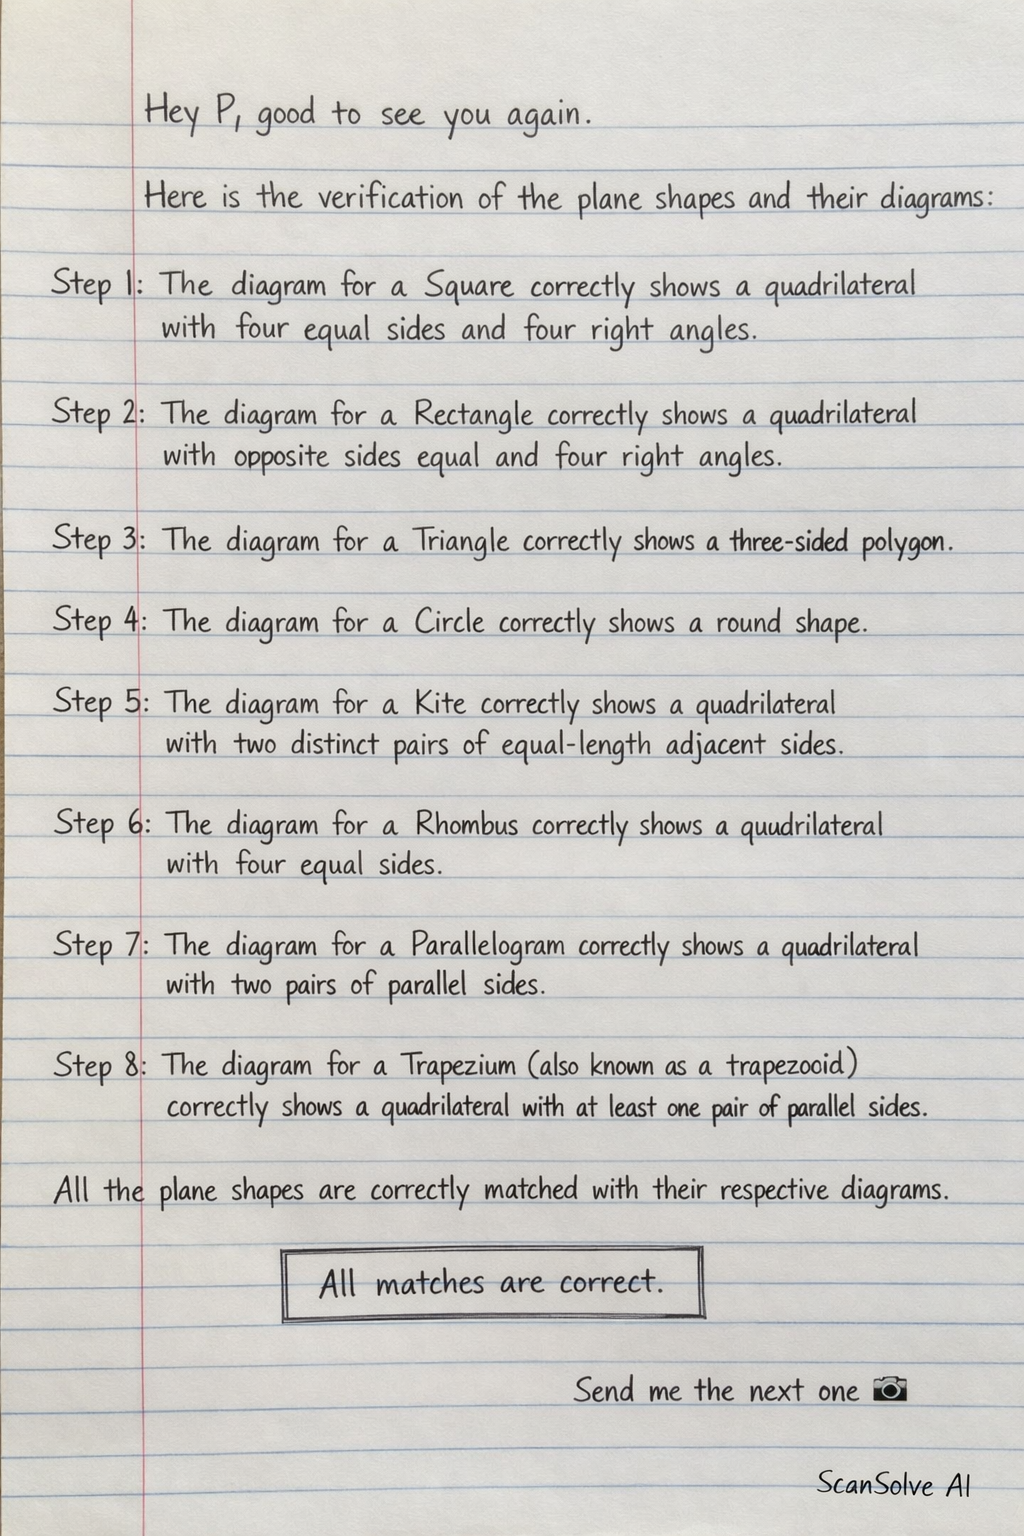 Hey P, good to see you again.
Here is the verification of the plane shapes and their diagrams:
Step 1: The diagram for a Square correctly shows a quadrilateral
with four equal sides and four right angles.
Step 2: The diagram for a Rectangle correctly shows a quadrilateral
with opposite sides equal and four right angles.
Step 3: The diagram for a Triangle correctly shows a three-sided polygon.
Step 4: The diagram for a Circle correctly shows a round shape.
Step 5: The diagram for a Kite correctly shows a quadrilateral
with two distinct pairs of equal-length adjacent sides.
Step 6: The diagram for a Rhombus correctly shows a quudrilateral
with four equal sides.
Step 7: The diagram for a Parallelogram correctly shows a quadrilateral
with two pairs of parallel sides.
Step 8: The diagram for a Trapezium (also known as a trapezooid)
correctly shows a quadrilateral with at least one pair of parallel sides.
All the plane shapes are correctly matched with their respective diagrams.
All matches are correct.
Send me the next one 📷
ScanSolve AI